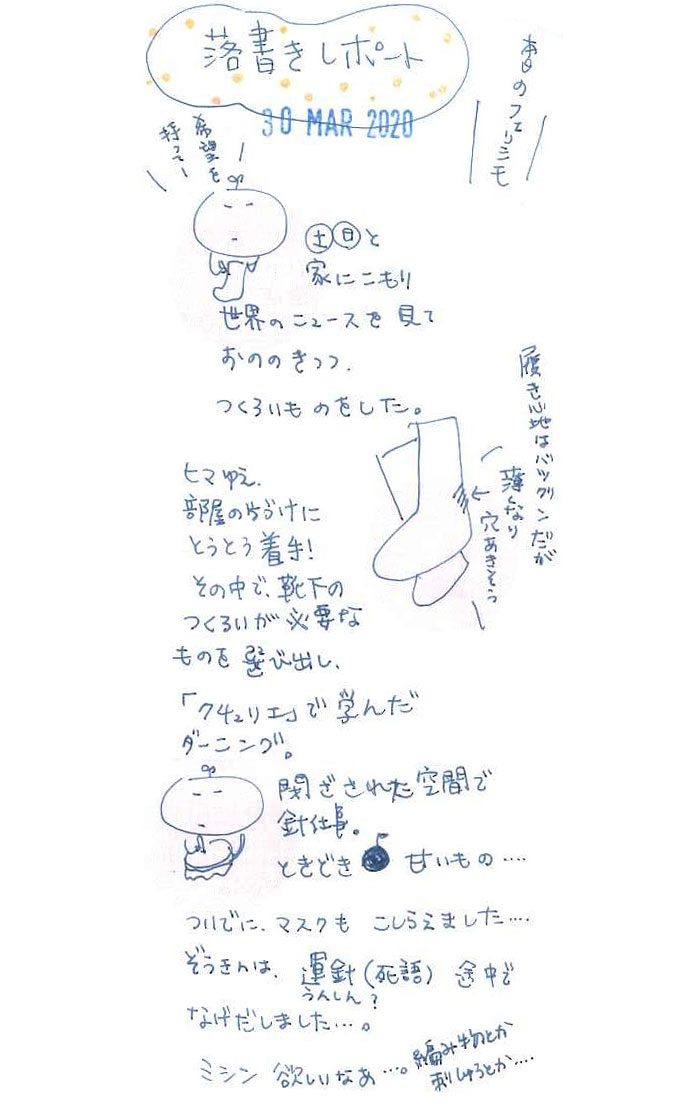 落書きレポート
30 MAR 2020
本日のフェリシモ
希望を
持って
土日と
家にこもり
世界のニュースを見て
おののきつつ、
つくろいものをした。
履き心地はバツグンだが
薄くなり
穴あきそう
ヒマゆえ、
部屋の片づけに
とうとう着手!
その中で、靴下の
つくろいが必要な
ものを選び出し、
「クチュリエ」で学んだ
ダーニング。
閉ざされた空間で
針仕事。
ときどき 甘いもの‥‥
ついでに、マスクも こしらえました‥‥
ぞうきんは、運針(死語) 途中で
うんしん?
なげだしました‥‥。
ミシン 欲しいなあ‥‥。編み物とか
刺しゅうとか‥‥